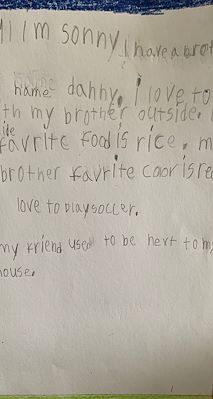 Hi I'm sonny, i have a brot
name danny. i love to
th my brother outside.
favrite food is rice. m
brother favrite coloris rec
love to play soccer.
my friend used to be hert to my
house.